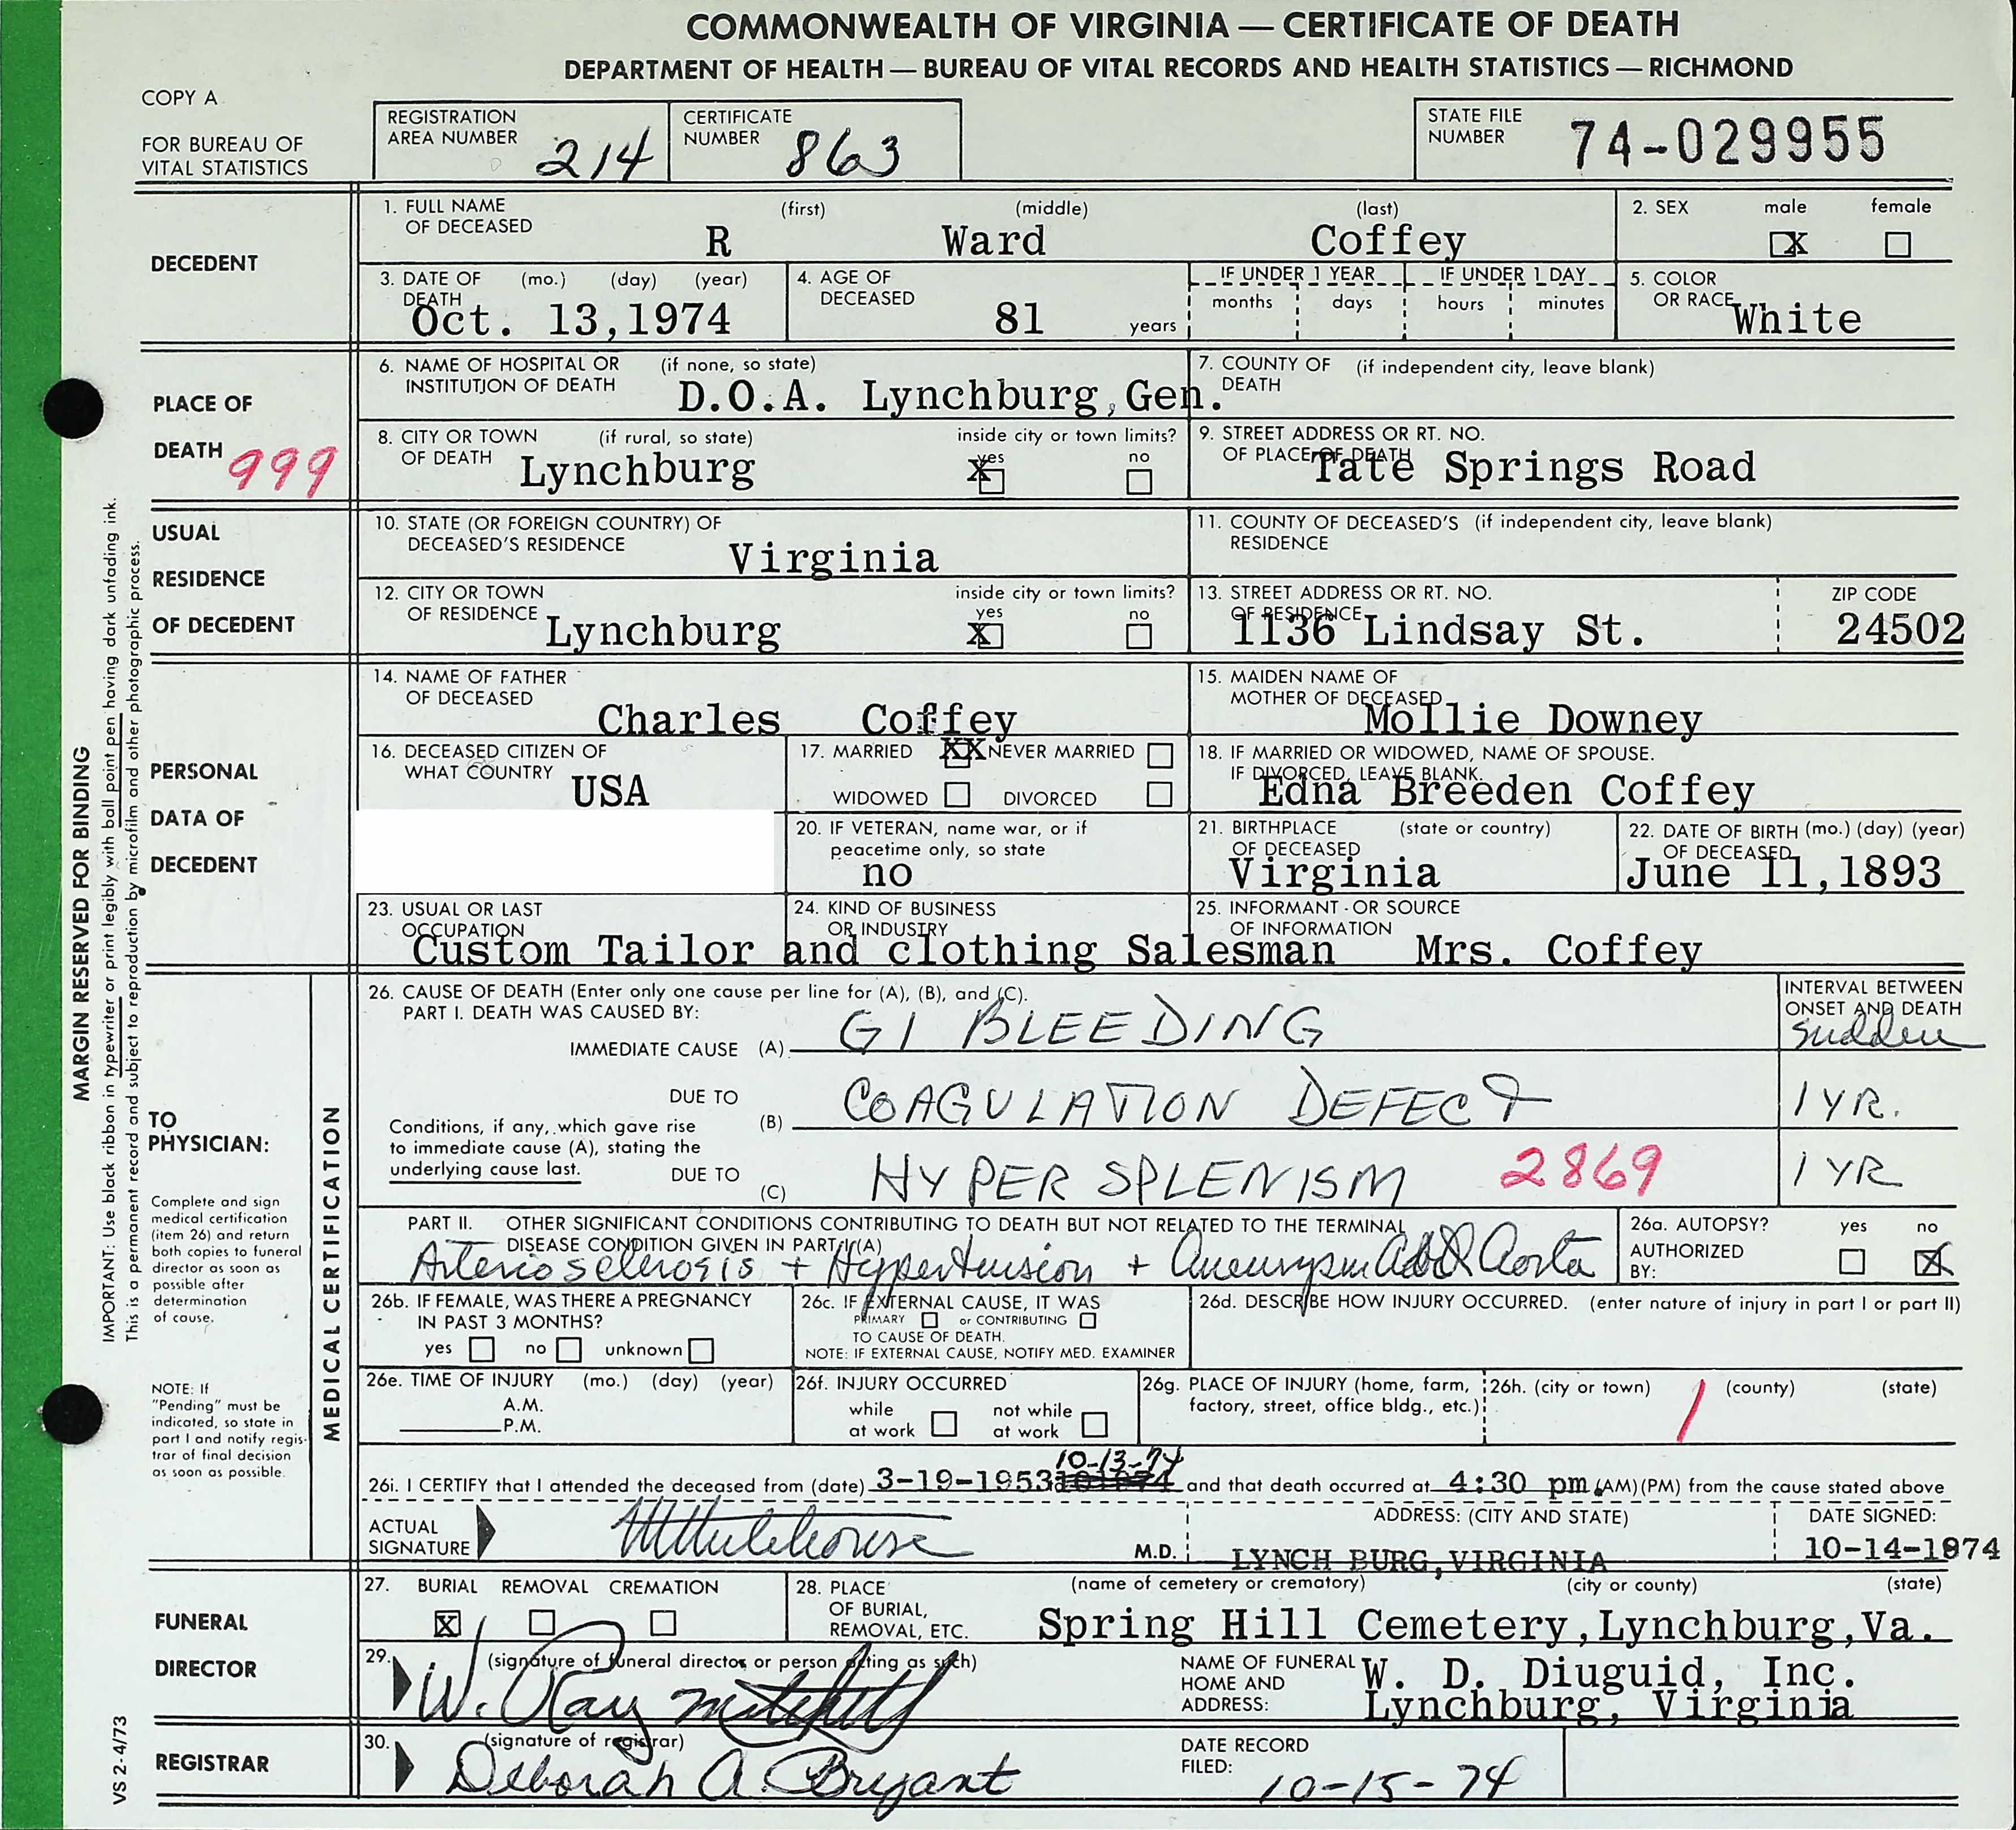 COMMONWEALTH OF VIRGINIA — CERTIFICATE OF DEATH
DEPARTMENT OF HEALTH — BUREAU OF VITAL RECORDS AND HEALTH STATISTICS — RICHMOND
COPY A
FOR BUREAU OF
VITAL STATISTICS
REGISTRATION
AREA NUMBER 214
CERTIFICATE
NUMBER 863
STATE FILE
NUMBER 74-029955
DECEDENT
1. FULL NAME (first) (middle) (last)
OF DECEASED R Ward Coffey
2. SEX male female
X
3. DATE OF (mo.) (day) (year)
DEATH
Oct. 13,1974
4. AGE OF
DECEASED 81 years
IF UNDER 1 YEAR IF UNDER 1 DAY
months days hours minutes
5. COLOR
OR RACE White
PLACE OF
DEATH 999
6. NAME OF HOSPITAL OR (if none, so state)
INSTITUTION OF DEATH D.O.A. Lynchburg,Gen.
7. COUNTY OF (if independent city, leave blank)
DEATH
8. CITY OR TOWN (if rural, so state) inside city or town limits?
OF DEATH Lynchburg yes X no
9. STREET ADDRESS OR RT. NO.
OF PLACE OF DEATH Tate Springs Road
USUAL
RESIDENCE
OF DECEDENT
10. STATE (OR FOREIGN COUNTRY) OF
DECEASED'S RESIDENCE Virginia
11. COUNTY OF DECEASED'S (if independent city, leave blank)
RESIDENCE
12. CITY OR TOWN inside city or town limits?
OF RESIDENCE Lynchburg yes X no
13. STREET ADDRESS OR RT. NO.
OF RESIDENCE 1136 Lindsay St.
ZIP CODE
24502
PERSONAL
DATA OF
DECEDENT
14. NAME OF FATHER
OF DECEASED Charles Coffey
15. MAIDEN NAME OF
MOTHER OF DECEASED Mollie Downey
16. DECEASED CITIZEN OF
WHAT COUNTRY USA
17. MARRIED XX NEVER MARRIED
WIDOWED DIVORCED
18. IF MARRIED OR WIDOWED, NAME OF SPOUSE.
IF DIVORCED, LEAVE BLANK.
Edna Breeden Coffey
20. IF VETERAN, name war, or if
peacetime only, so state
no
21. BIRTHPLACE (state or country)
OF DECEASED
Virginia
22. DATE OF BIRTH (mo.) (day) (year)
OF DECEASED
June 11,1893
23. USUAL OR LAST
OCCUPATION
24. KIND OF BUSINESS
OR INDUSTRY
25. INFORMANT - OR SOURCE
OF INFORMATION
Custom Tailor and clothing Salesman Mrs. Coffey
TO
PHYSICIAN:
Complete and sign
medical certification
(item 26) and return
both copies to funeral
director as soon as
possible after
determination
of cause.
NOTE: If
"Pending" must be
indicated, so state in
part I and notify regis-
trar of final decision
as soon as possible.
MEDICAL CERTIFICATION
26. CAUSE OF DEATH (Enter only one cause per line for (A), (B), and (C).
PART I. DEATH WAS CAUSED BY:
INTERVAL BETWEEN
ONSET AND DEATH
IMMEDIATE CAUSE (A) GI BLEEDING sudden
DUE TO
(B) COAGULATION DEFECT 1 YR.
Conditions, if any, which gave rise
to immediate cause (A), stating the
underlying cause last.
DUE TO
(C) HYPERSPLENISM 2869 1 YR
PART II. OTHER SIGNIFICANT CONDITIONS CONTRIBUTING TO DEATH BUT NOT RELATED TO THE TERMINAL
DISEASE CONDITION GIVEN IN PART I (A)
Arteriosclerosis + Hypertension + Aneurysm Abd Aorta
26a. AUTOPSY? yes no
AUTHORIZED
BY: X
26b. IF FEMALE, WAS THERE A PREGNANCY
IN PAST 3 MONTHS?
yes no unknown
26c. IF EXTERNAL CAUSE, IT WAS
PRIMARY or CONTRIBUTING
TO CAUSE OF DEATH.
NOTE: IF EXTERNAL CAUSE, NOTIFY MED. EXAMINER
26d. DESCRIBE HOW INJURY OCCURRED. (enter nature of injury in part I or part II)
26e. TIME OF INJURY (mo.) (day) (year)
A.M.
P.M.
26f. INJURY OCCURRED
while at work not while at work
26g. PLACE OF INJURY (home, farm,
factory, street, office bldg., etc.)
26h. (city or town) (county) (state)
10-13-74
26i. I CERTIFY that I attended the deceased from (date) 3-19-1953 and that death occurred at 4:30 pm. (AM) (PM) from the cause stated above
ACTUAL
SIGNATURE
M.D.
ADDRESS: (CITY AND STATE)
LYNCH BURG,VIRGINIA
DATE SIGNED:
10-14-1974
FUNERAL
DIRECTOR
27. BURIAL REMOVAL CREMATION
X
28. PLACE
OF BURIAL,
REMOVAL, ETC.
(name of cemetery or crematory) (city or county) (state)
Spring Hill Cemetery,Lynchburg,Va.
29. (signature of funeral director or person acting as such)
W. Ray Mitchell
NAME OF FUNERAL
HOME AND
ADDRESS:
W. D. Diuguid, Inc.
Lynchburg, Virginia
REGISTRAR
30. (signature of registrar)
Deborah A. Bryant
DATE RECORD
FILED: 10-15-74
MARGIN RESERVED FOR BINDING
IMPORTANT: Use black ribbon in typewriter or print legibly with ball point pen having dark unfading ink.
This is a permanent record and subject to reproduction by microfilm and other photographic process.
VS 2-4/73